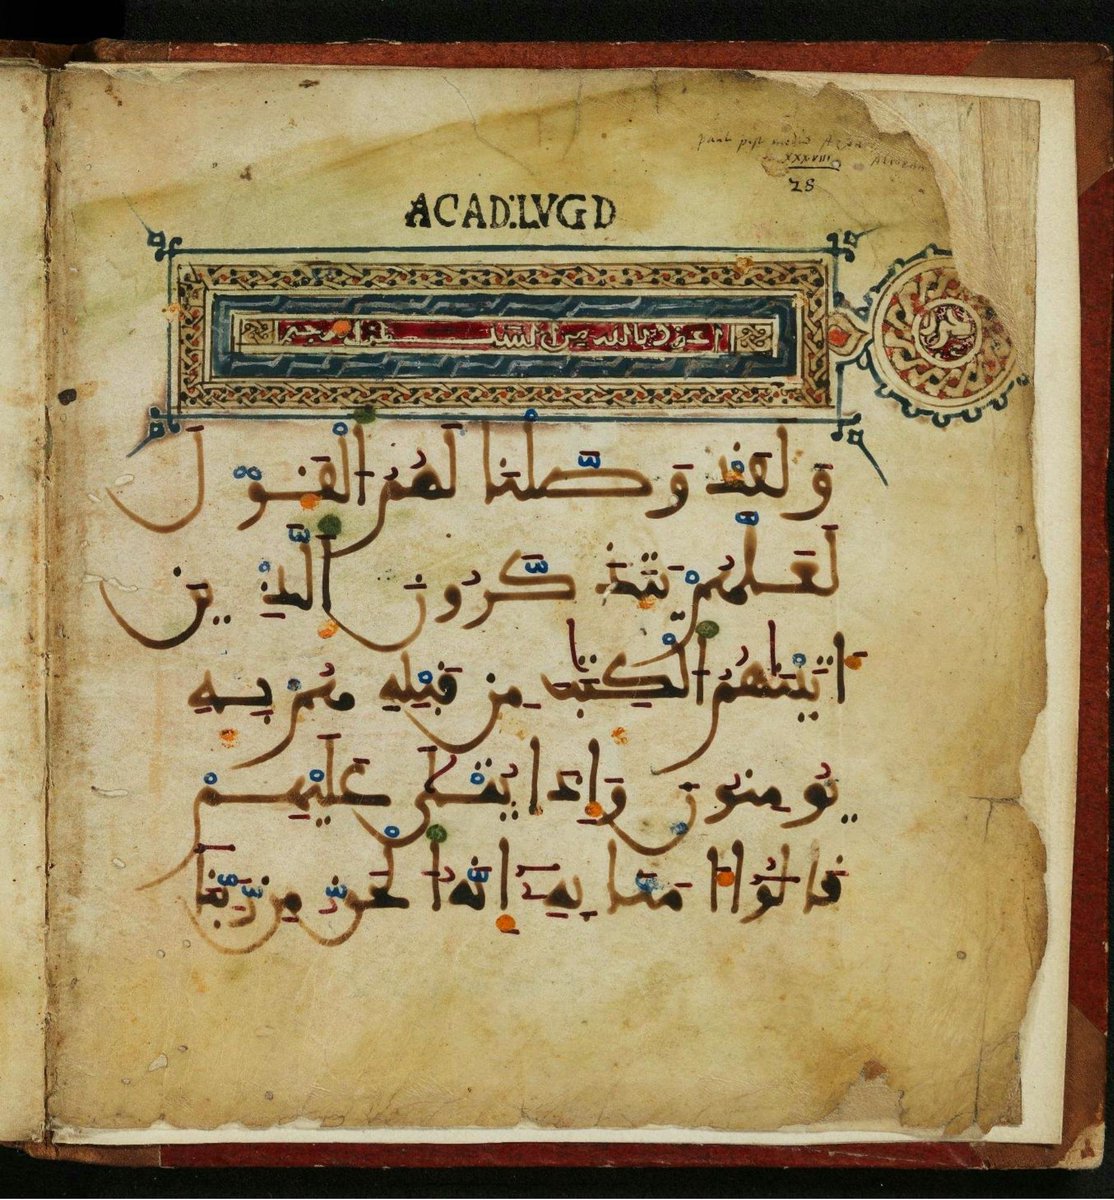 XXXVIII
28
ACAD: LVGD
اعوذ بالله من الشيطن الرجيم
حزب
وَلَقَدْ وَصَّلْنَا لَهُمُ الْقَوْلَ
لَعَلَّهُمْ يَتَذَكَّرُونَ الَّذِينَ
اتَيْنَٰهُمُ الْكِتَٰبَ مِن قَبْلِهِ هُم بِهِ
يُومِنُونَ وَإِذَا يُتْلَىٰ عَلَيْهِمْ
قَالُوا ءامَنَّا بِهِ إِنَّهُ الْحَقُّ مِن رَّبِّنَا